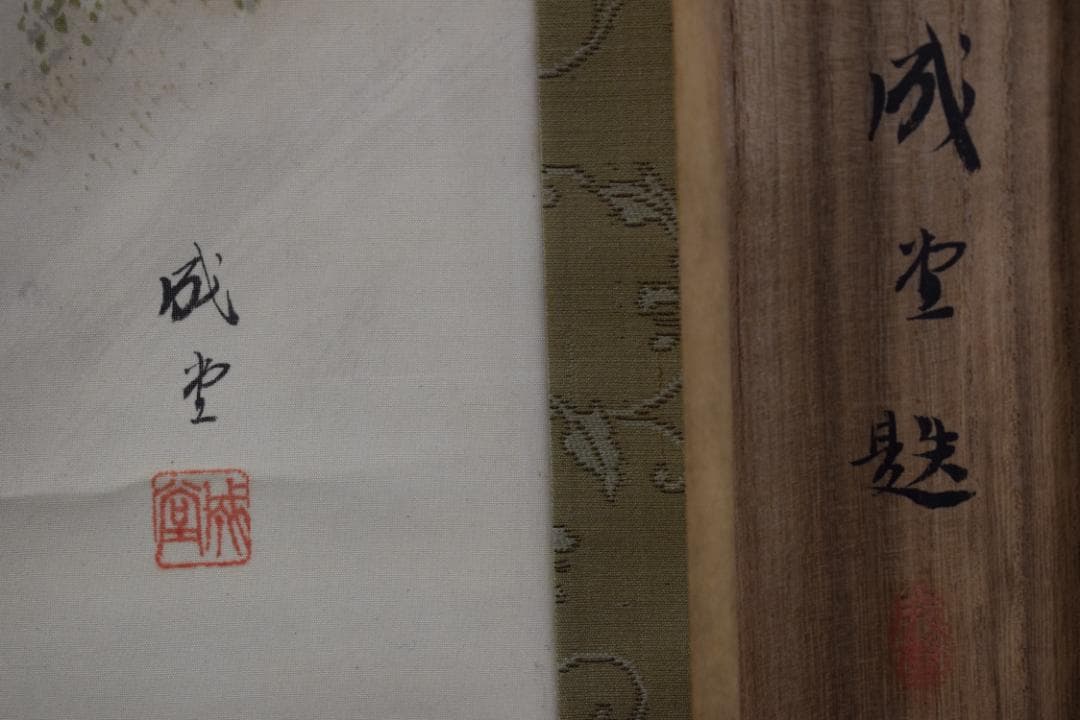 成堂
成堂
成堂題